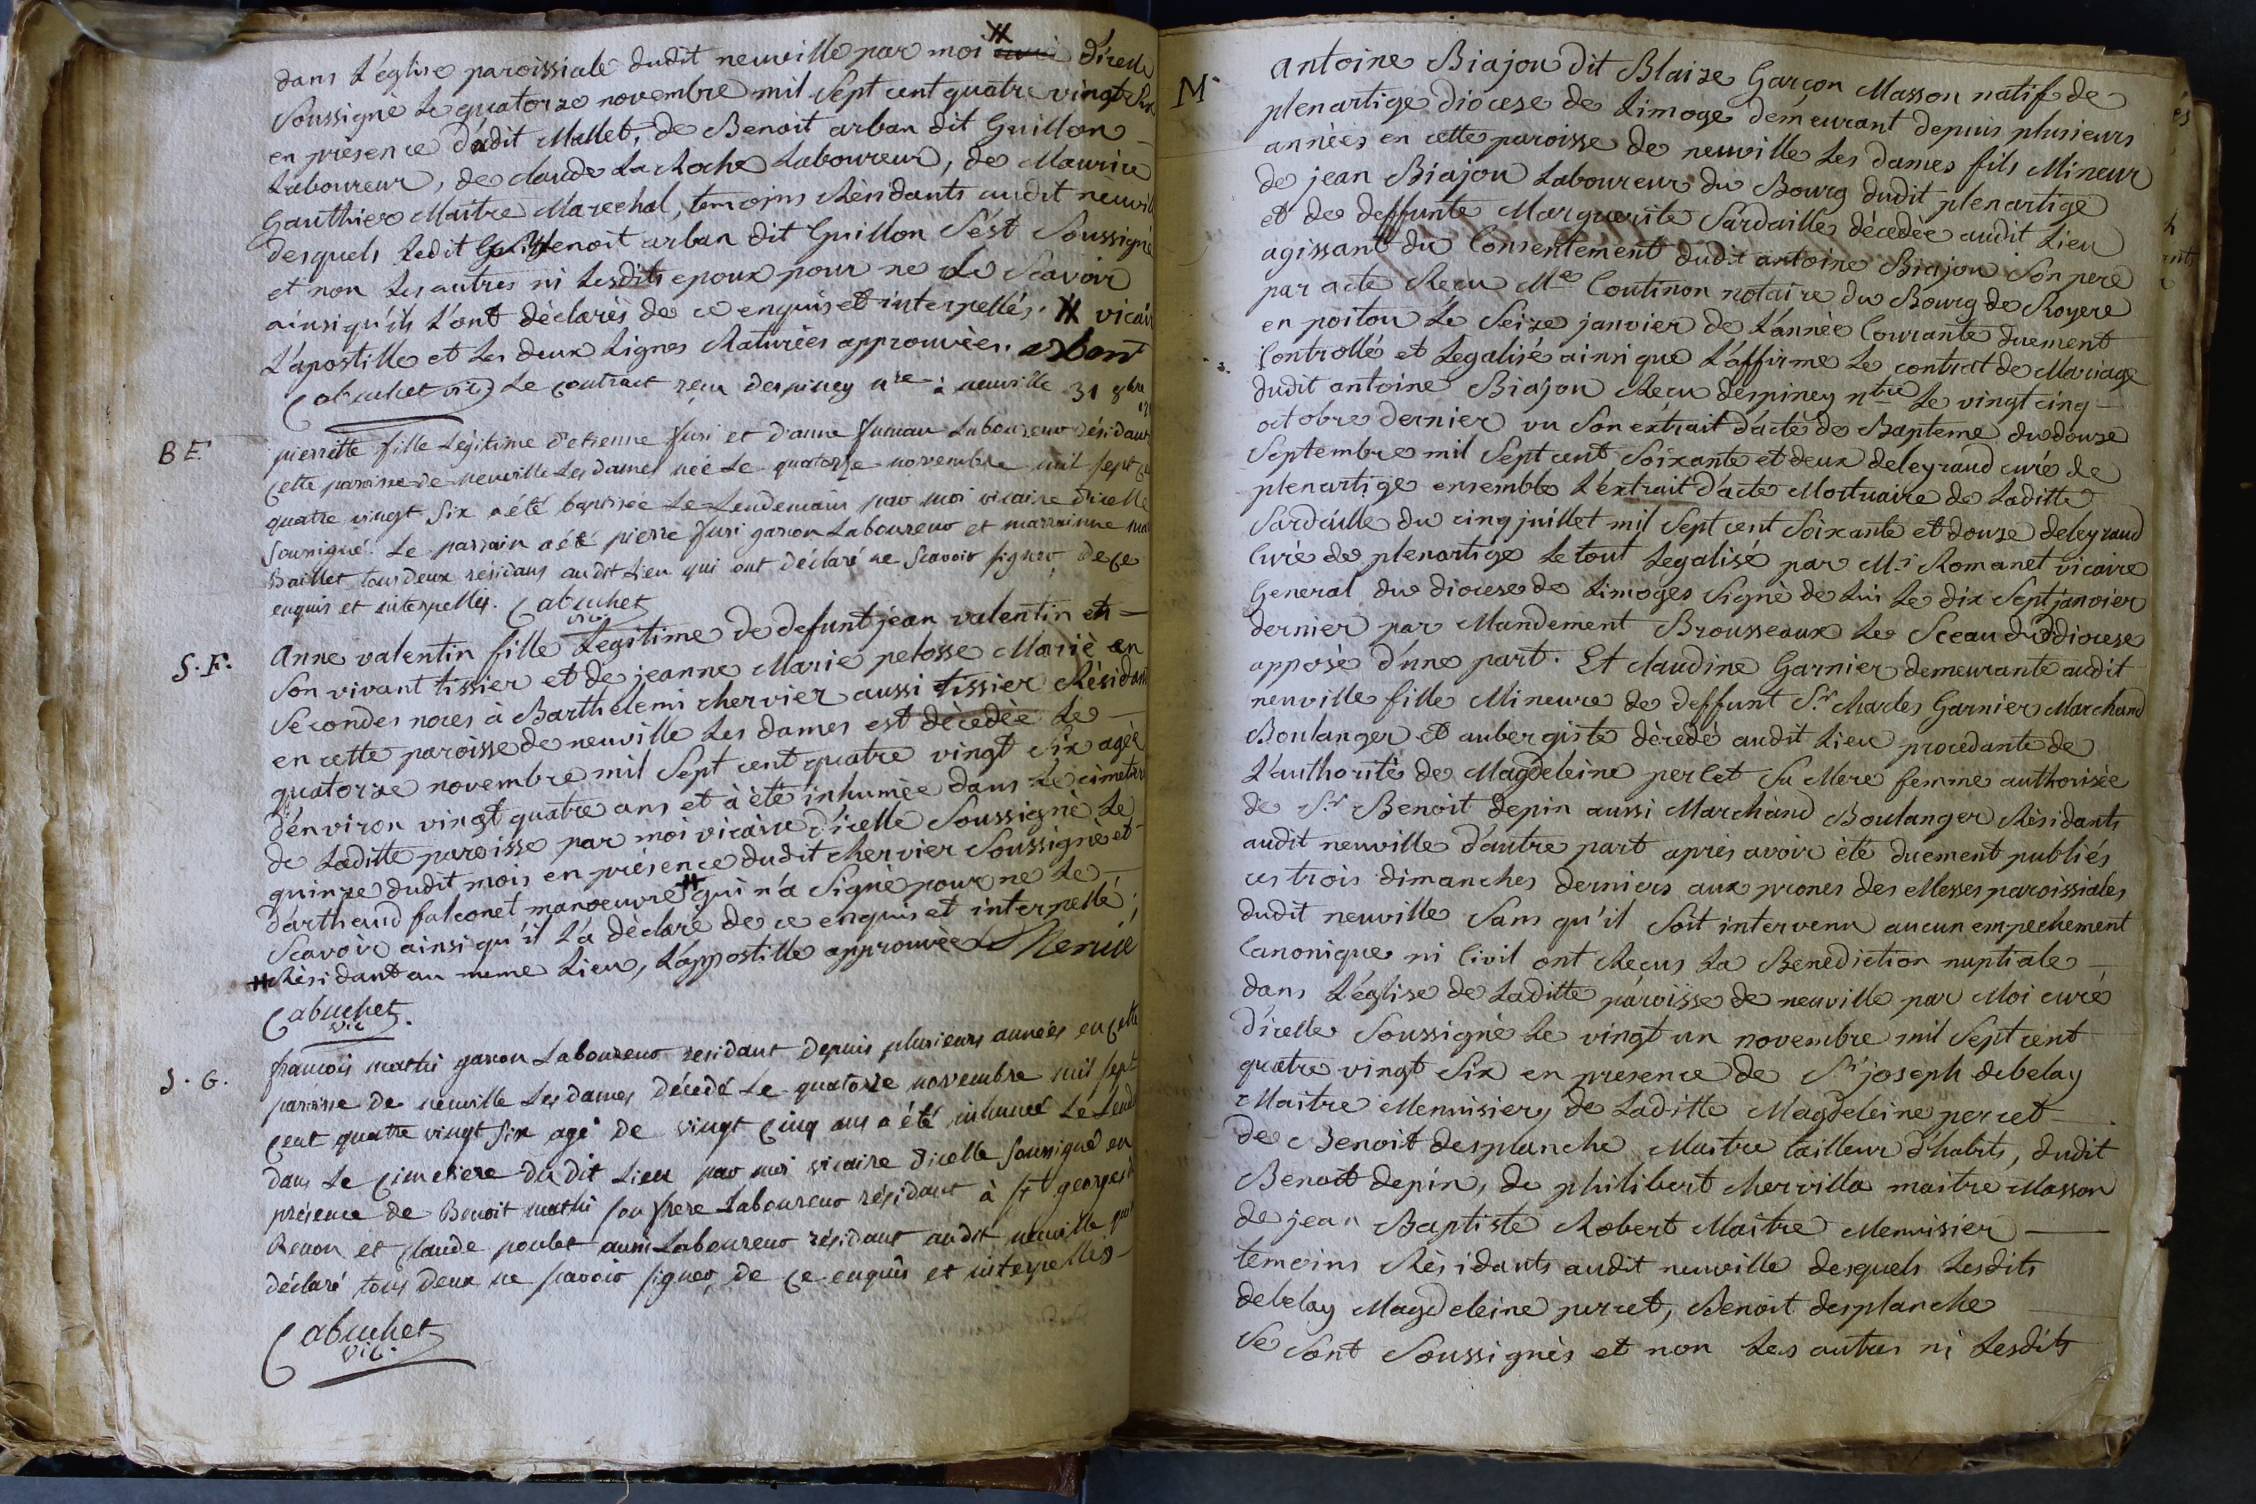 dans L'église paroissiale dudit neuville par moi # curé d'icelle
Soussigné Le quatorze novembre mil Sept cent quatre vingt Six
en présence dudit Mallet, de Benoit arban dit Guillon
Laboureur, de claude La Roche Laboureur, de Maurice
Gauthier Maitre Marechal, temoins Résidants audit neuvil
desquels Ledit Benoit arban dit Guillon S'ést Soussigné
et non Les autres ni Lesdits epoux pour ne Le Scavoir
ainsi qu'ils L'ont déclarés de ce enquis et interpellés. # vicair
L'apostille et Les deux Lignes Raturées approuvées. arban
Cabuchet vic Le contract reçu despiney nre à neuville 31 8bre
B F.
pierrette fille Légitime d'etienne Juri et d'anne Laboureur résidans
cette paroisse de neuville Les dames née Le quatorze novembre mil sept ce
quatre vingt Six a été baptisée Le Lendemain par moi vicaire d'icelle
Soussigné. Le parrain a été pierre Juri garçon Laboureur et marrainne
Baillet tous deux résidans audit Lieu qui ont déclaré ne Scavoir signer, de ce
enquis et interpellés. Cabuchet
vic
S. F.
Anne valentin fille Légitime de defunt jéan valentin en
Son vivant tissier et de jeanne Marie pelosse Marié en
Secondes noces à Barthelemi chervier aussi tissier Résidant
en cette paroisse de neuville Les dames est décedée Le
quatorze novembre mil Sept cent quatre vingt Six agée
d'énviron vingt quatre ans et à été inhumée dans Le cimetier
de Laditte paroisse par moi vicaire d'icelle Soussigné Le
quinze dudit mois en présence dudit chervier Soussigné et
d'artheaud falconet manoeuvre # qui n'a Signé pour ne Le
Scavoir ainsi qu'il L'a déclaré de ce enquis et interpellé;
# Résidant au meme Lieu, L'appostille approuvée
Cabuchet
vic.
S. G.
françois mathi garçon Laboureur residant depuis plusieurs années en cette
paroisse de neuville Les dames décedé Le quatorze novembre mil sept
cent quatre vingt six agé de vingt cinq ans a été inhumé Le Lend
dans Le cimetiere du dit Lieu par moi vicaire d'icelle soussigné en
présence de Benoit mathi son frere Laboureur résidant à St georges
Renon et claude poulet aussi Laboureur résidant audit neuville qui
déclaré tous deux ne scavoir signer, de ce enquis et interpellés
Cabuchet
vic.
M.
Antoine Biajou dit Blaize Garçon Masson natif de
plenartige diocese de Limoge démeurant depuis plusieurs
années en cette paroisse de neuville Les dames fils Mineur
de jean Biajou Laboureur du Bourg dudit plenartige
et de deffunte Marguerite Sardaille décedée audit Lieu
agissant du Consentement dudit antoine Biajou Son pere
par acte Reçu Me Coutinon notaire du Bourg de Royere
en poitou Le Seize janvier de L'année Courante duement
Controllé et Legalisé ainsi que L'affirme Le contrat de Mariage
dudit antoine Biajou Reçu despiney ntre Le vingt cinq
octobre dernier vu Son éxtrait d'acte de Bapteme du douze
Septembre mil Sept cent Soixante et deux deleyraud curé de
plenartige ensemble L'éxtrait d'acte Mortuaire de Laditte
Sardaille du cinq juillet mil Sept cent Soixante et douze deleyraud
Curé de plenartige Le tout Legalisé par Mr Romanet vicaire
General du diocese de Limoges Signé de Lui Le dix Sept janvier
dernier par Mandement Brousseaux Le Sceau dud diocese
apposé d'une part. Et claudine Garnier demeurante audit
neuville fille Mineure de deffunt Sr. charles Garnier Marchand
Boulanger et aubergiste décedé audit Lieu procedante de
L'authorité de Magdeleine perret Sa Mere femme authorisée
de Sr Benoit depin aussi Marchand Boulanger Résidants
audit neuville d'autre part aprés avoir été duement publiés
ces trois dimanches derniers aux prones des Messes paroissiales
dudit neuville Sans qu'il Soit intervenu aucun empechement
Canonique ni Civil ont Reçus La Benediction nuptiale
dans L'église de Laditte paroisse de neuville par Moi curé
d'icelle Soussigné Le vingt un novembre mil Sept cent
quatre vingt Six en presence de Sr joseph debelay
Maitre Menuisiery de Laditte Magdeleine perret
de Benoit desplanche Maitre tailleur d'habits, dudit
Benoit depin, de philibert chervilla maitre Masson
de jean Baptiste Robert Maitre Menuisier
temoins Résidants audit neuville desquels Lesdits
debelay Magdeleine perret, Benoit desplanche
Se Sont Soussignés et non Les autres ni Lesdits